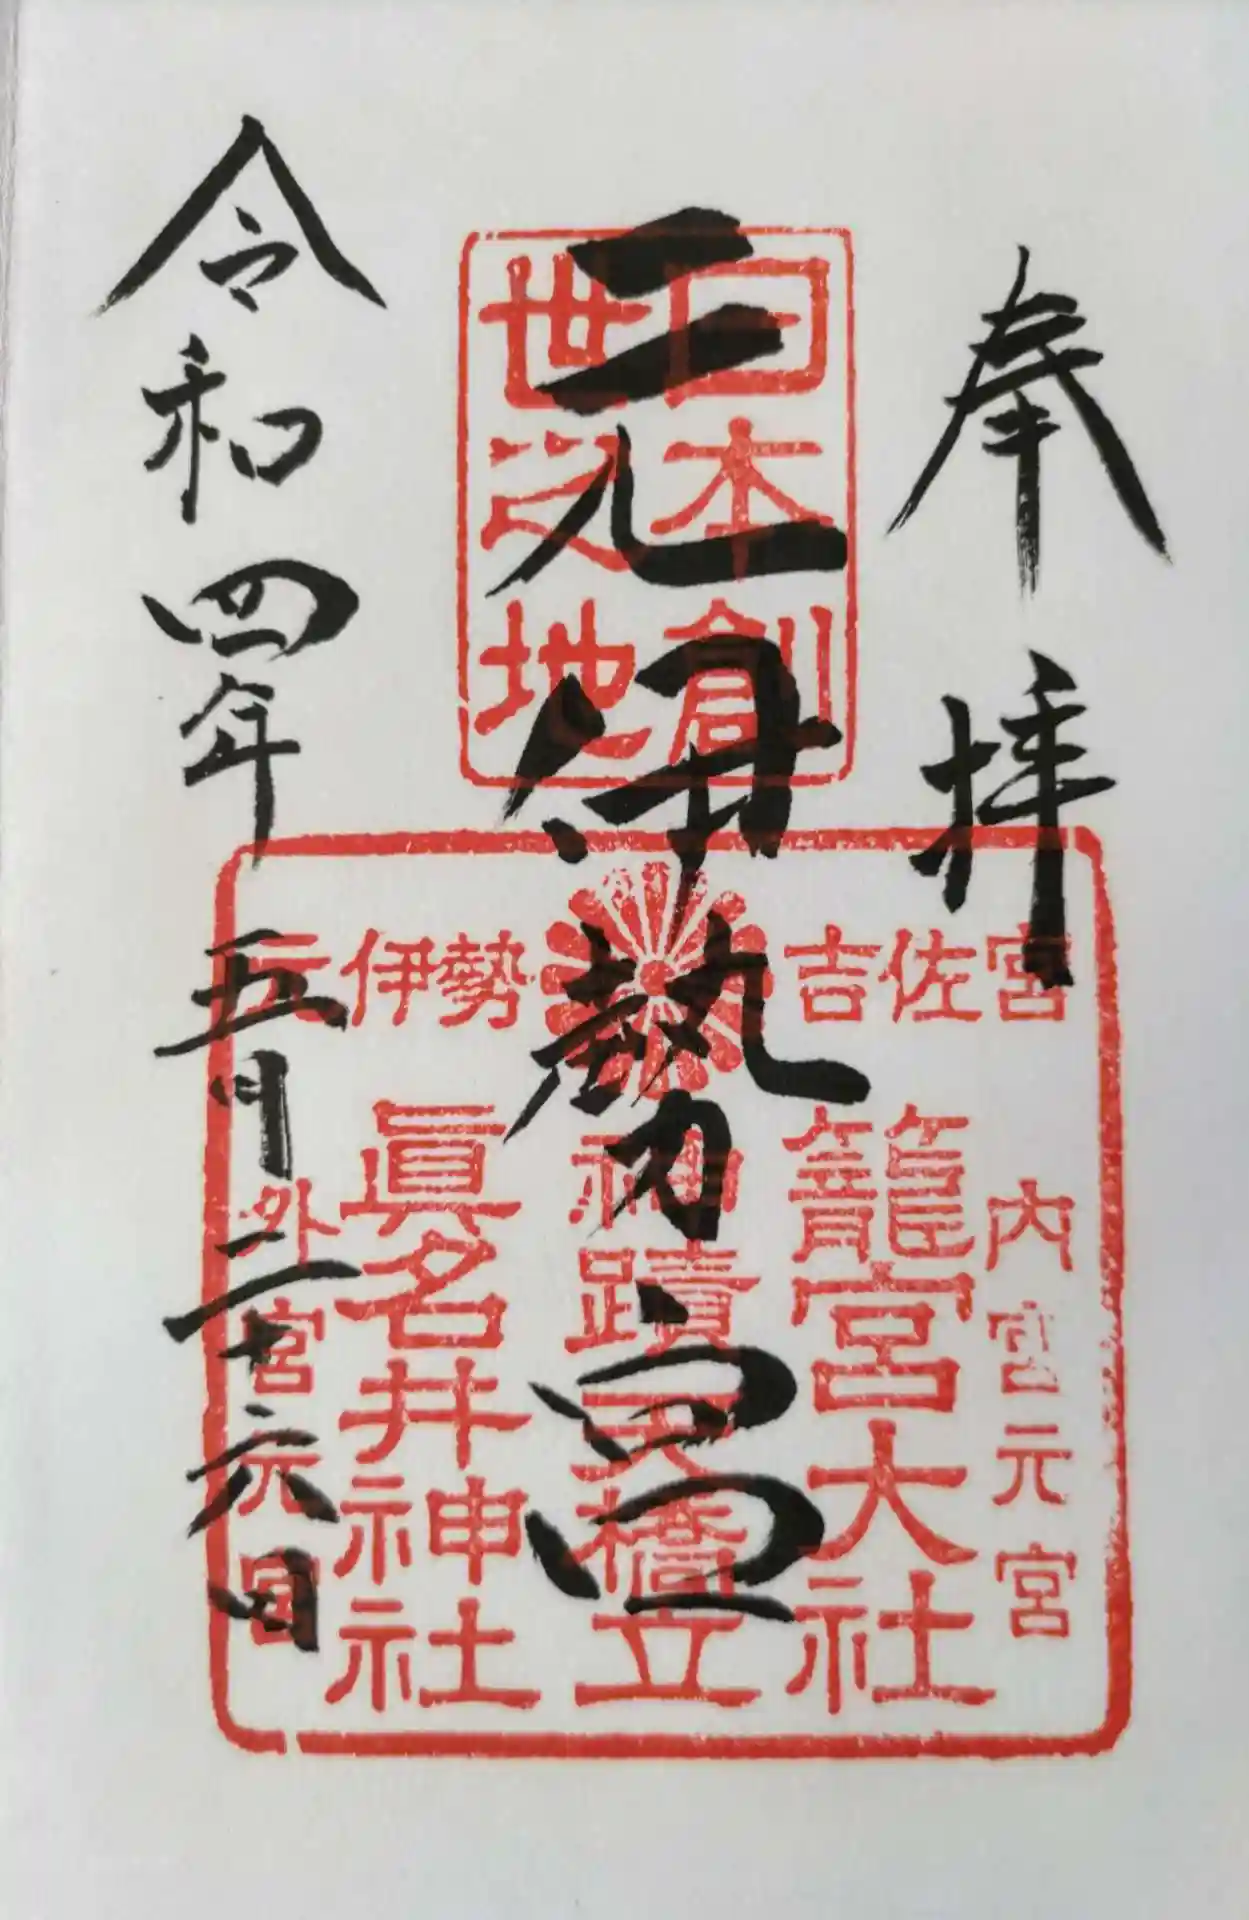 奉拝
日本創
世之地
元伊勢宮
元伊勢 吉佐宮
内宮元宮
籠宮大社
神蹟天橋立
眞名井神社
外宮元宮
令和四年五月二十六日